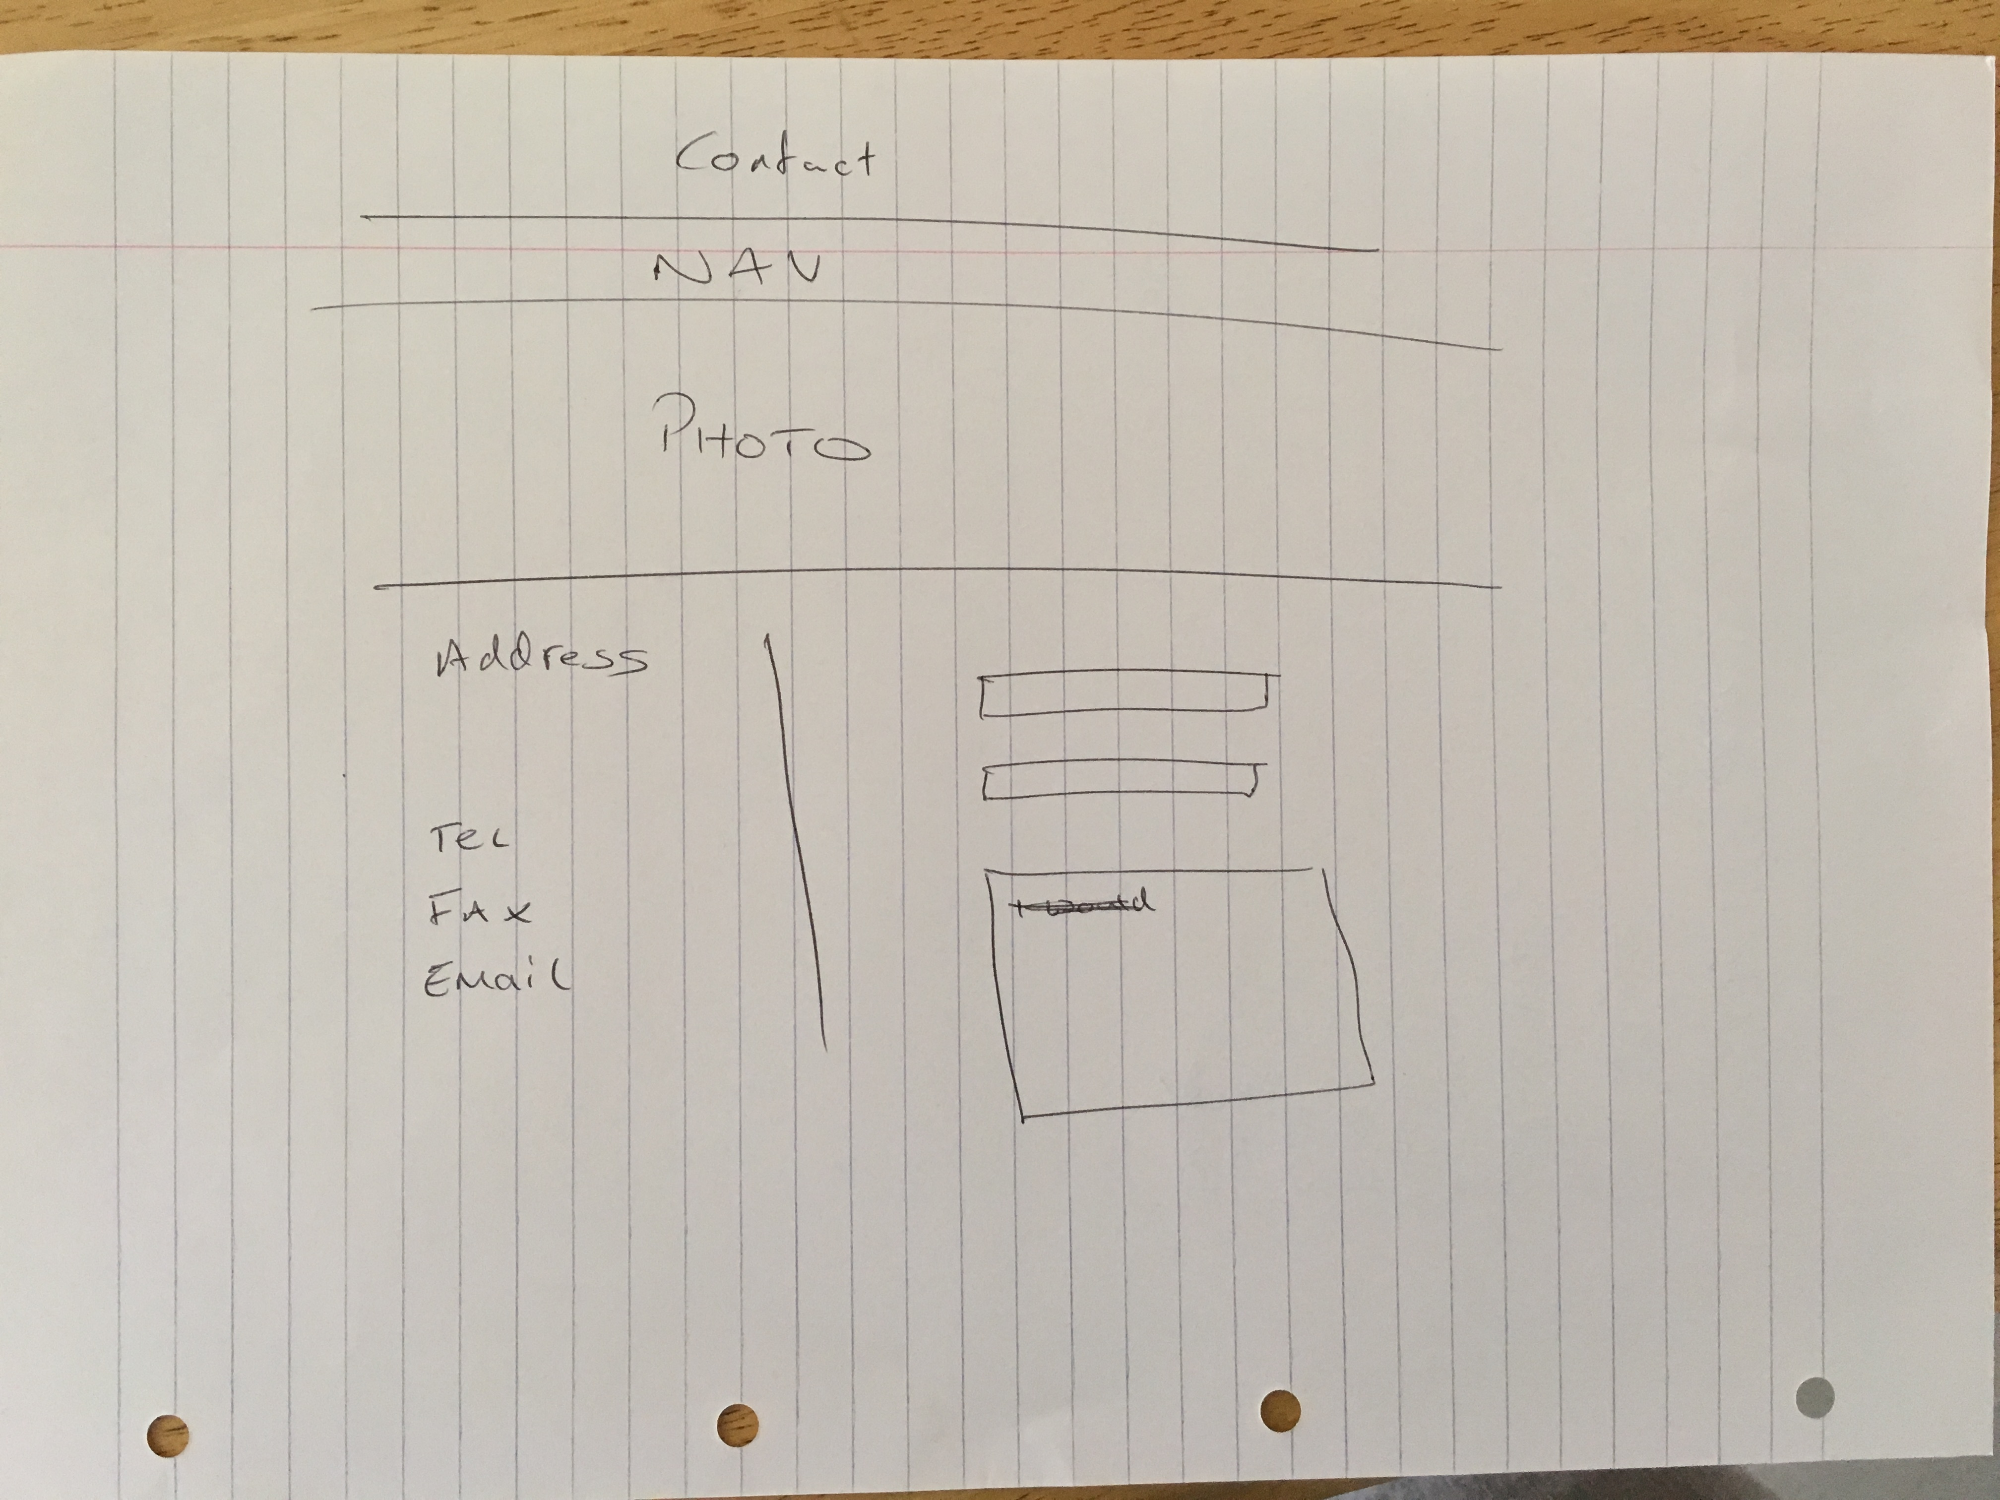 Contact
NAV
PHOTO
Address
Tel
FAX
Email